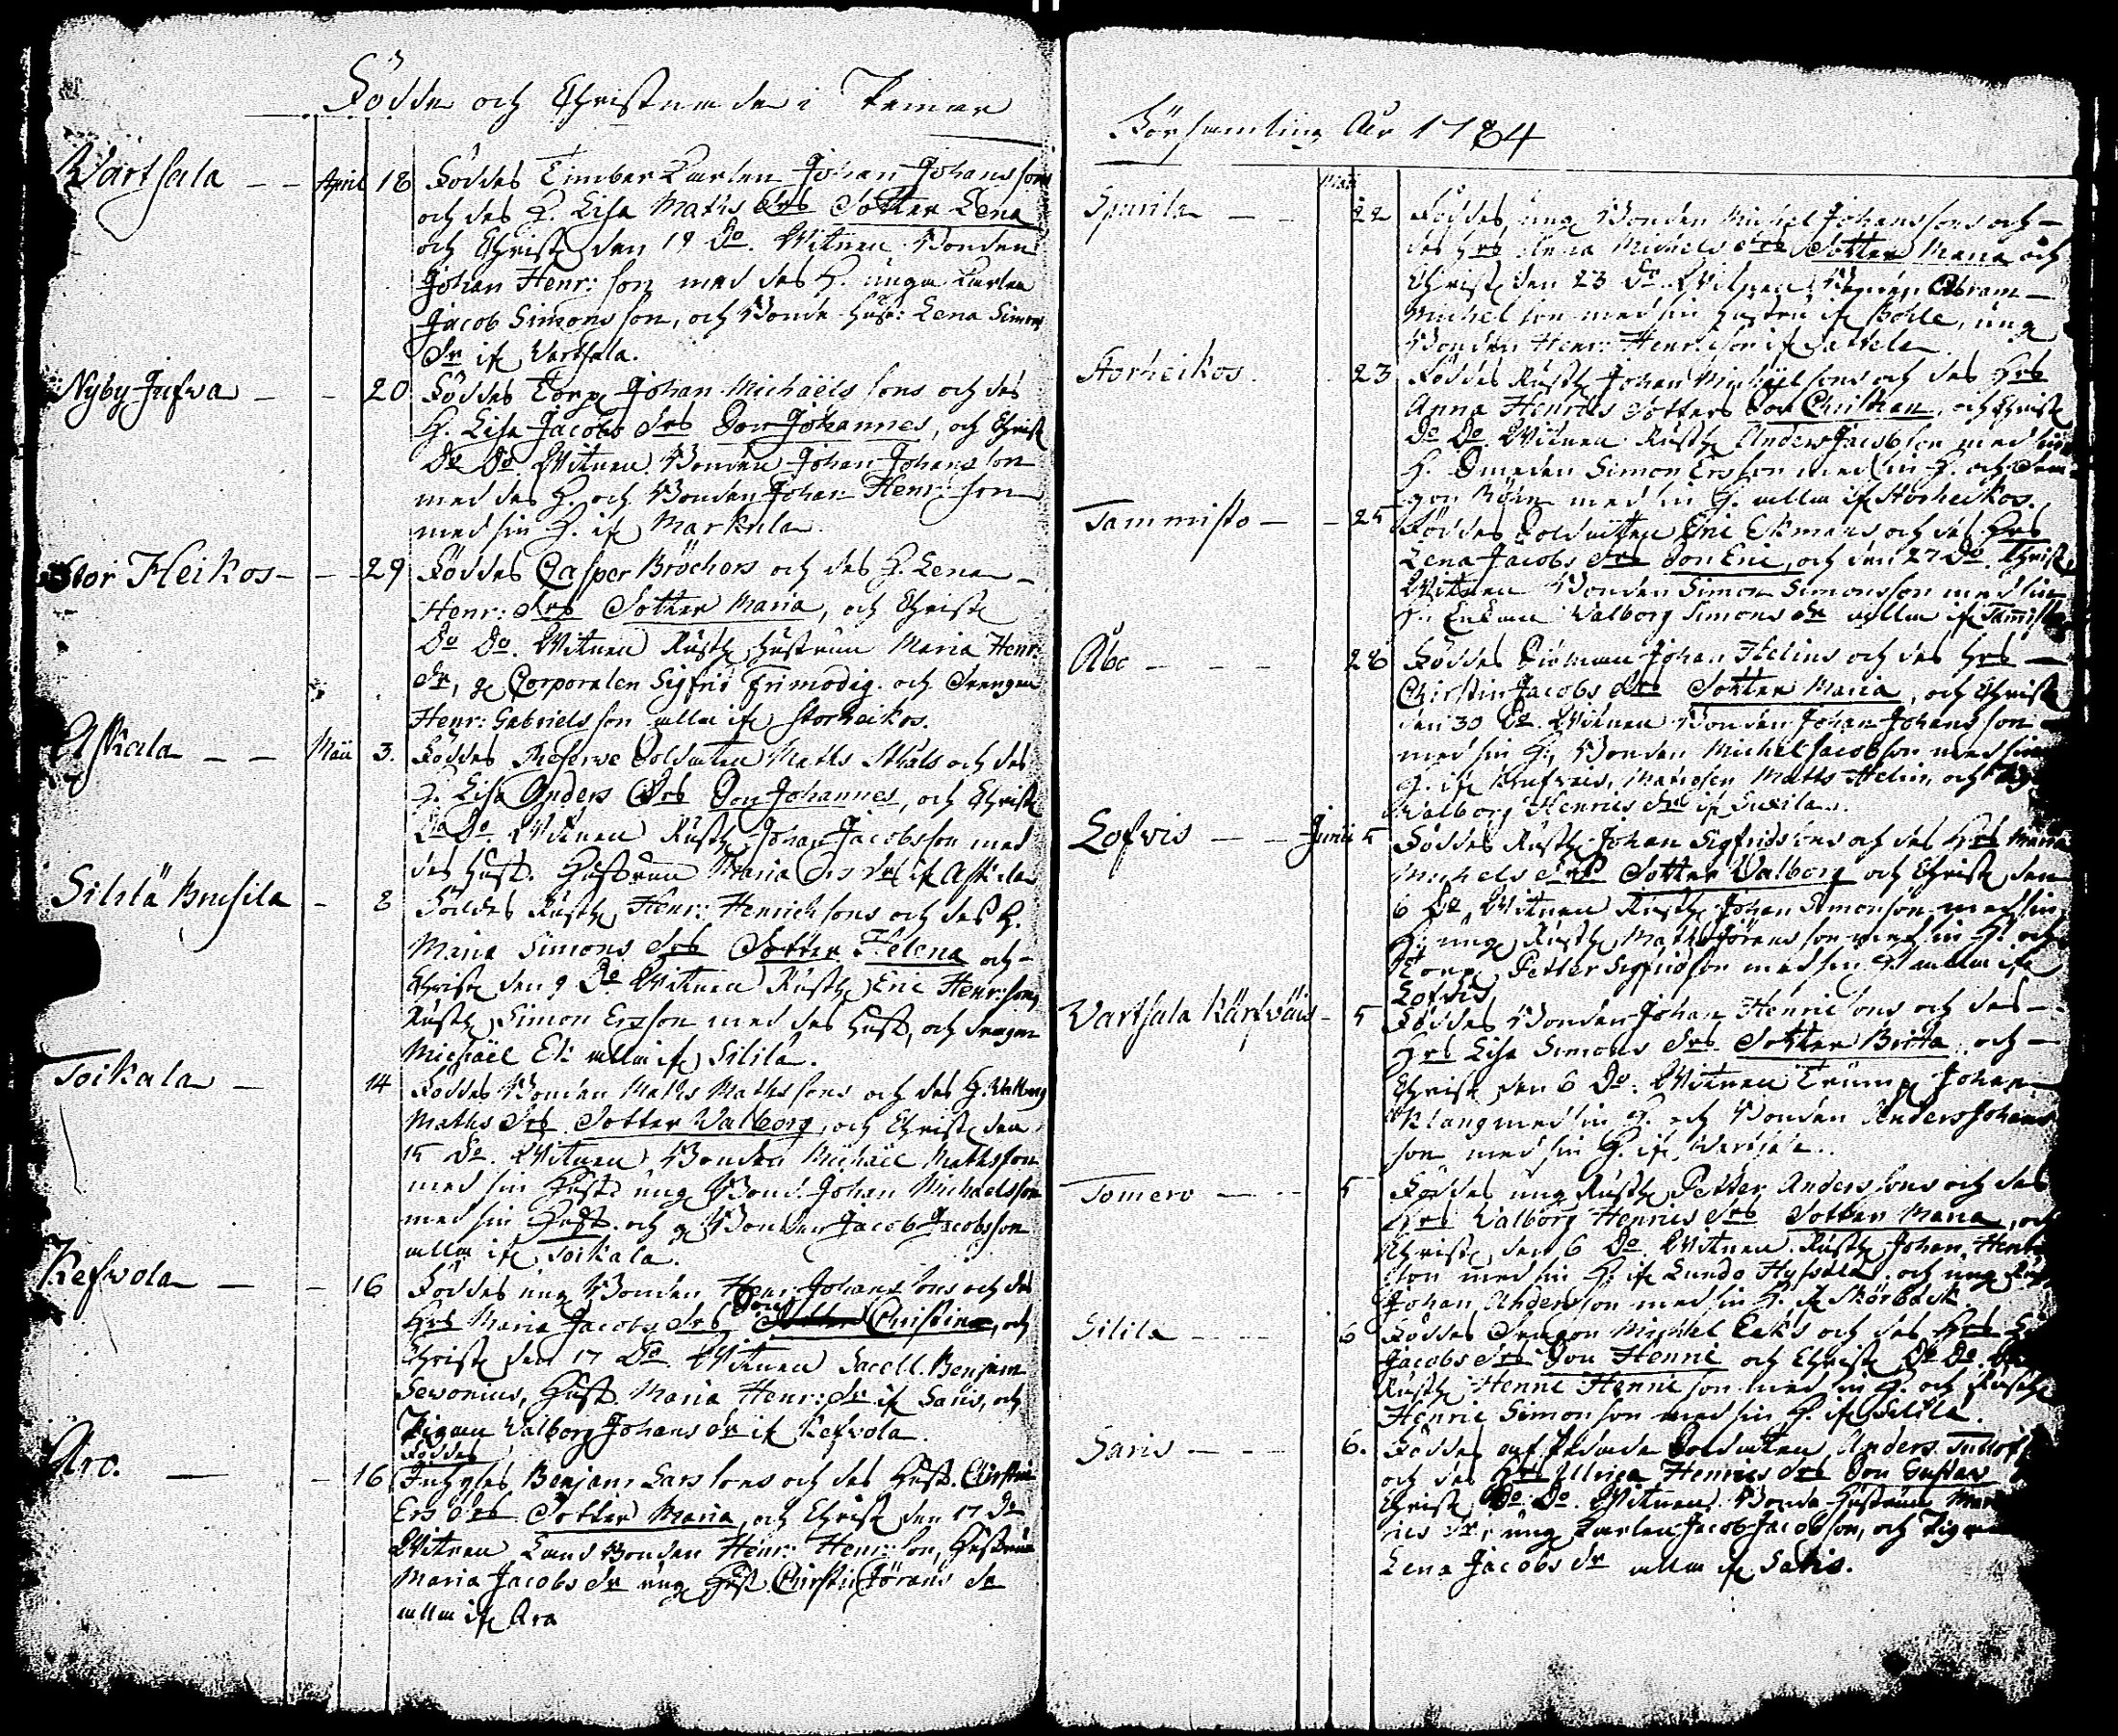 Födde och Christnade i Pemar
Wartsala - - April 18 Föddes Timber Karlen Johan Johans sons
och des H. Lisa Maths Drs Dotter Lena
och Christ den 19 Do. Witnen Bonden
Johan Henr: son med des H. unga Karlen
Jacob Simons son, och Bonde Hustr: Lena Simons
Dr if Wartsala.
Nyby Jufwa - - 20 Föddes Torp Johan Michaëls sons och des
H. Lisa Jacobs Drs Son Johannes, och Christ
Do Do. Witnen Bonden Johan Johans son
med des H. och Bonden Johan Henr: son
med sin H. if Markula.
Stor Heikos - - 29 Föddes Casper Bröchers och des H. Lena -
Henr: Drs Dotter Maria, och Christ
Do Do. Witnen Rusth Hustrun Maria Henr:
Dr, g Corporalen Sigfrid Frimodig och Drengen
Henr: Gabriels son alla if Storheikos.
Askala - - Maii 3. Föddes Reserve Soldaten Maths Ståls och des
H. Lisa Anders Drs Son Johannes, och Christ
Do Do. Witnen Rusth Johan Jacobsson med
des Hust. Hustrun Maria Dr if Askala
Sililä Brusila - 8 Föddes Rusth Henr: Henrich sons och des H.
Maria Simons Drs Dotter Helena och -
Christ den 9 Do Witnen Rusth Eric Henr: son,
Rusth Simon Ersson med des Hust, och Drengen
Michaël Eli alla if Silila.
Toikala - 14 Föddes Bonden Maths Maths sons och des H. Walborg
Maths Drs Dotter Walborg, och Christ den
15 Do. Witnen Bonden Michaël Mathsson
med sin Hust ung Bond. Johan Michaelsson
med sin Hust. och g Bonden Jacob Jacobsson
alla if Toikala.
Kefvola - - 16 Föddes ung Bonden Henr Johans sons och des
Hrs Maria Jacobs Drs Son Christina, och
Christ den 17 Do. Witnen Sacell. Benjam
Sevonius, Hust. Maria Henr: Dr if Saris, och
Pigan Walborg Johans Dr if Kefvola.
Föddes
Aro. - - 16 Inhyses Benjam Lars sons och des Hust. Christin
Ers Drs Dotter Maria, och Christ den 17 Do
Witnen Land Bonden Henr: Henr: son, Hustrun
Maria Jacobs Dr ung Hust Christin Jörans Dr
alla if Ara
Församling Åhr 1784
Spurila - - Maii 22 Föddes ung Bonden Michel Johans sons och -
des Hrs Michels Drs Dotter Maria och
Christ den 23 Do. Witnen Bonden Abram -
Michel son med sin Hustru if Böhle, ung
Bonden Henr: Henric son if
Storheikos. 23 Föddes Rusth Johan Michael sons och des Hrs
Anna Henrics Dotters Son Christian, och Christ
Do Do. Witnen Rusth Anders Jacobson med sin
H. Smeden Simon Ersson med sin H. och
med sin H. alla if Storheikos.
Tammisto - - 25 Föddes Soldatten Eric Ekmans och des Hrs
Lena Jacobs Drs Son Eric, och den 27 Do. Christ
Witnen Bonden Simon Simonsson med sin
H. Enkan Walborg Simons Dr alla if Tammisto
Åbo - - - 28 Föddes Siöman Johan Helins och des Hrs -
Christin Jacobs Drs Dotter Maria, och Christ
den 30 Do. Witnen Bonden Johan Johans son -
med sin H., Bonden Michel Jacobson med sin
H. if Matrosen Maths Helin, och Pig
Walborg Henrics Dr if
Lofvis - - Junii 5 Föddes Rusth Johan Sigfrids sons och des Hrs Maria
Michels Drs Dotter Walborg och Christ den
6 Do, Witnen Rusth Johan Simonson med sin
H. ung Rusth Maths Jörans son med sin H. och
Torp Petter Sigfrids son med sin H alla if
Lofvis
Wartsala Kärkväis - 5 Föddes Bonden Johan Henric sons och des -
Hrs Lisa Simons Drs Dotter Brita, och -
Christ den 6 Do. Witnen Trump Johan
Klang med sin H. och Bonden Anders Johans
son med sin H. if Wartsala.
Tomero - - 5 Föddes ung Rusth Petter Anders sons och des
Hrs Walborg Henrics Drs Dotter Maria, och
Christ den 6 Do. Witnen Rusth Johan Henric
son med sin H. if Lundo Hyssälä, och ung
Johan Anders son med sin H. if Skörback
Silila - - - 6 Föddes Dragon Michel Eeks och des Hrs
Jacobs Drs Son Henric och Christ Do Do.
Rusth Henric Henric son med sin H. och Rusth
Henric Simon son med sin H. if Silila.
Saris - - - 6. Föddes Soldaten Anders
och des Hrs Ullrica Henrics Drs Son Gustav
Christ Do Do. Witnen Bonde Hustrun
Dr, ung Karlen Jacob Jacobson, och Pigan
Lena Jacobs Dr alla if Saris.